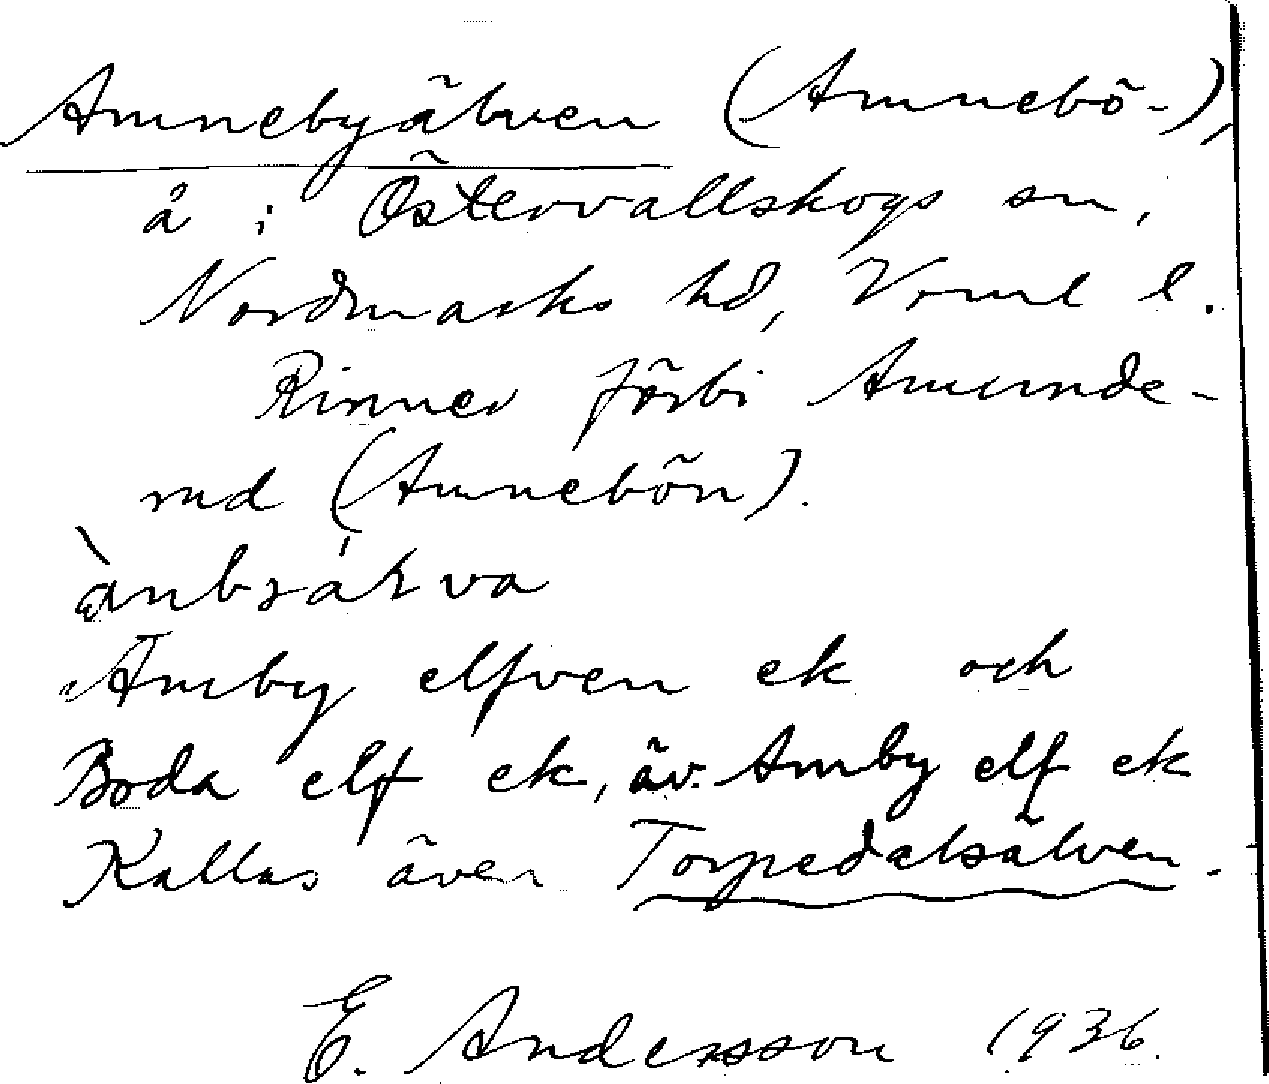 Amnebyälven (Amnebö-),
å i Östervallskogs sn,
Nordmarks hd, Vrml l.
Rinner förbi Amunde-
rud (Amnebön).
Åmby elfven ek och
Boda elf ek, äv. Amby elf ek
Kallas även Torpedalsälven.
E. Andersson 1936.